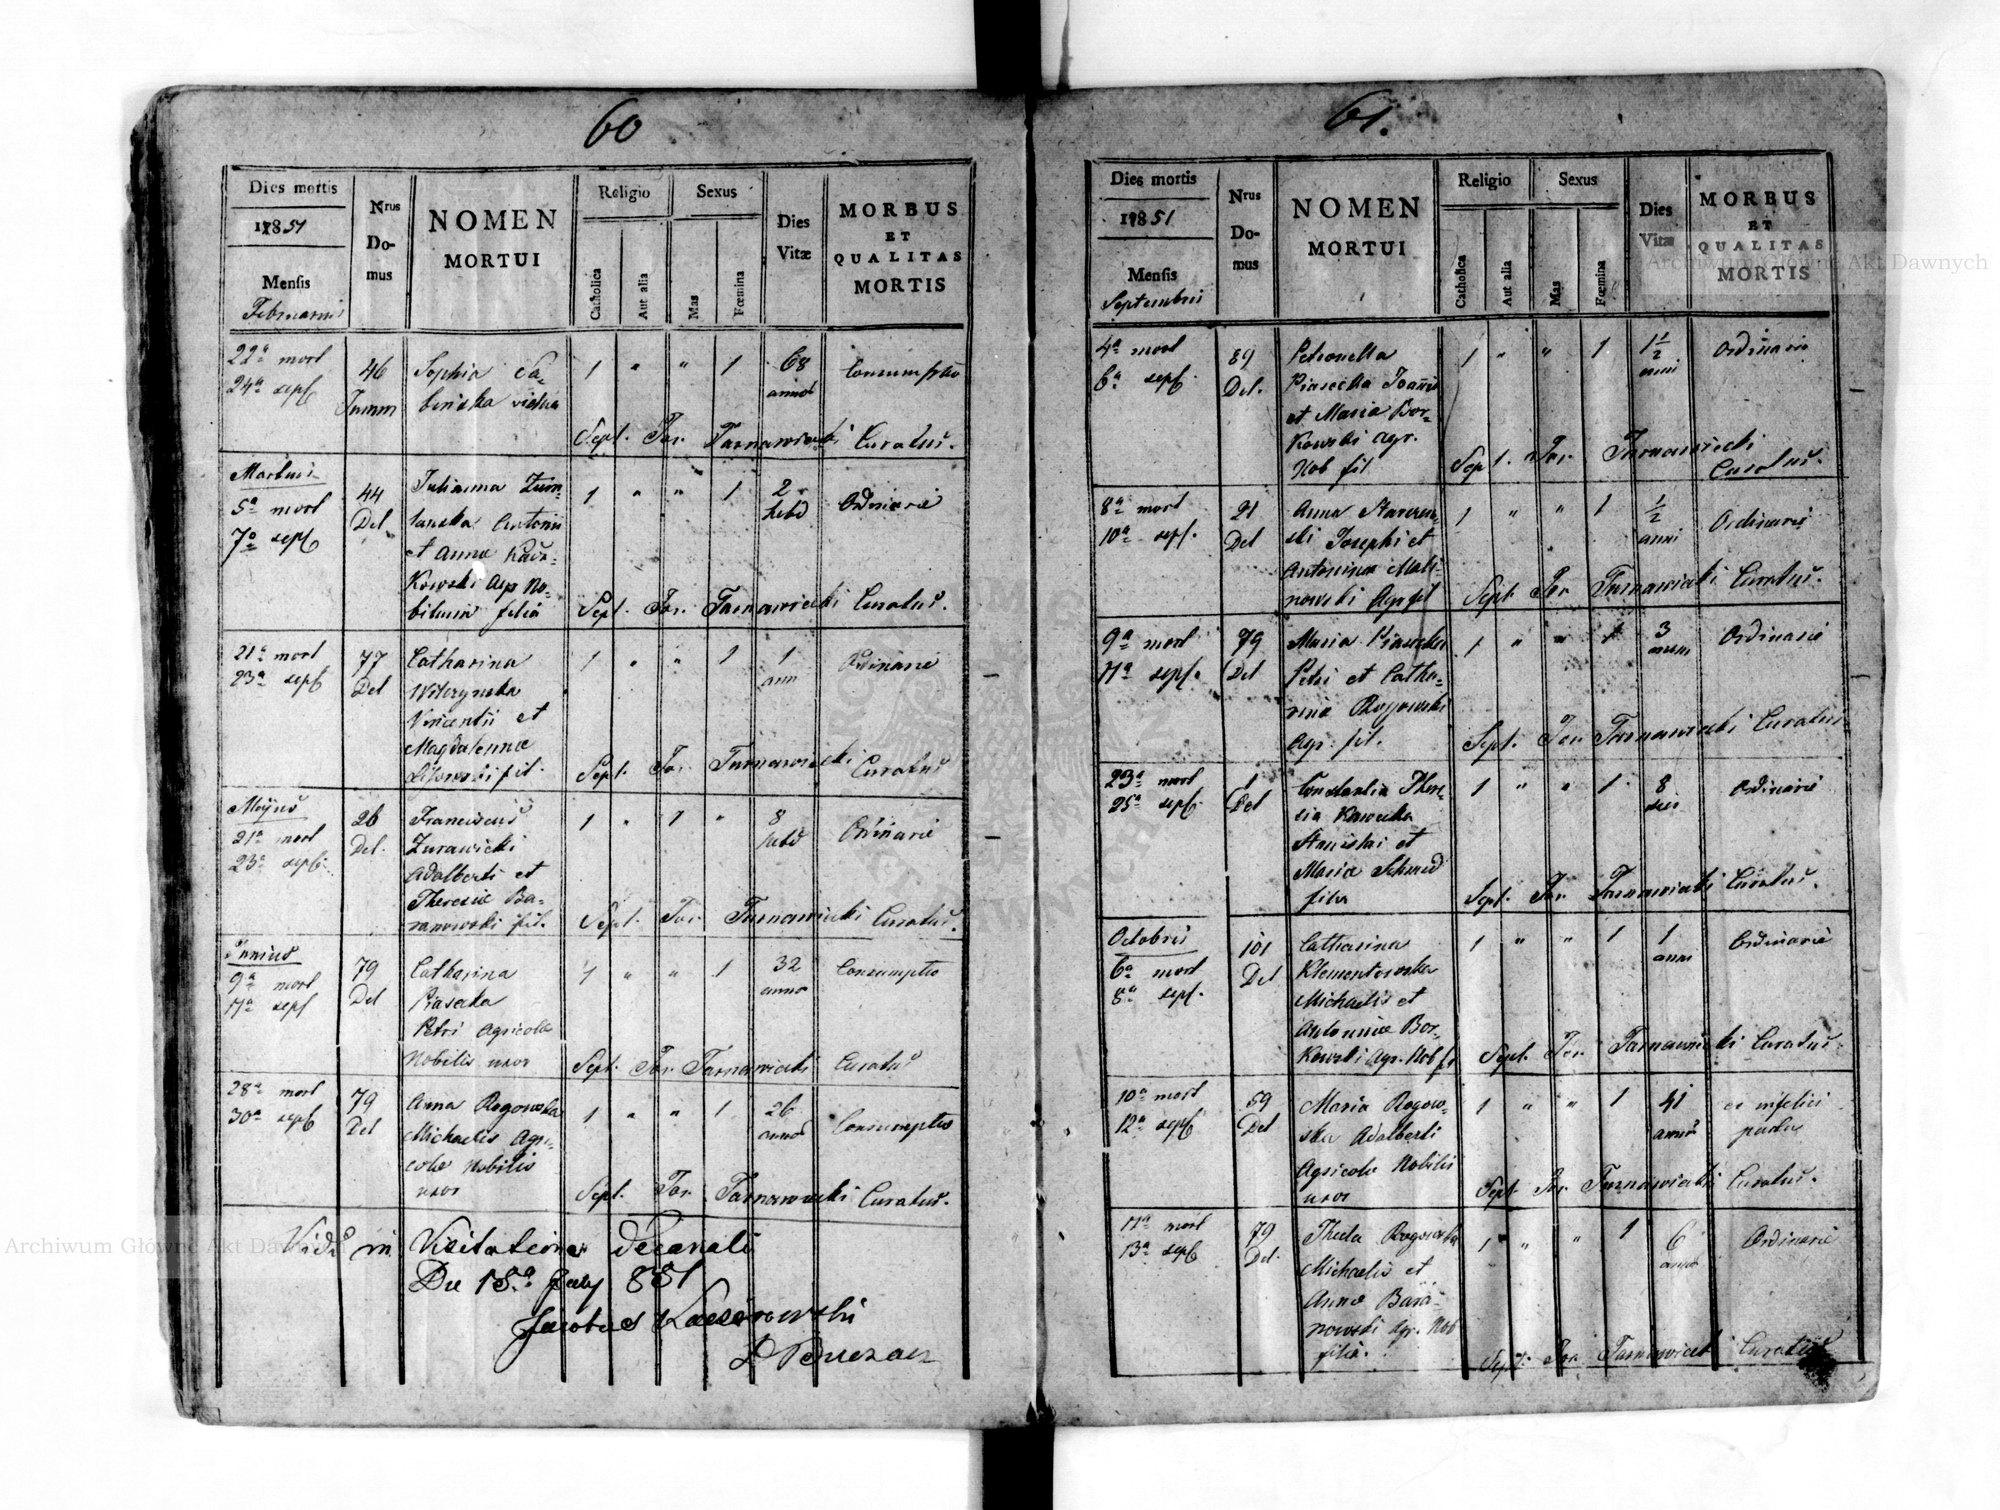 60
Dies mortis
1851
Mensis
Februarius
Nrus
Do-
mus
NOMEN
MORTUI
Religio
Catholica
Aut alia
Sexus
Mas
Fœmina
Dies
Vitæ
MORBUS
ET
QUALITAS
MORTIS
22a mort
24a sept
46
Sophia
vidua
1 " " 1
68
annor
Consumptio
Sept. Jos. Tarnawiecki Curatus.
Martius
5a mort
7a sepf
44
Del
Julianna
Antonii
et Anna
kowski Agr No-
bilium filia
1 " " 1
2
hebd
Ordinarie
Sept. Jos. Tarnawiecki Curatus.
21a mort
23a sepf
77
Del
Catharina
Wilczynska
Vincentii et
Magdalenna
fil.
1 " " 1
1
ann
Ordinarie
Sept. Jos. Tarnawiecki Curatus
Majus
21a mort
23a sepf.
26
Del.
Franciscus
Zurawicki
Adalberti et
Theresiæ Ba-
ranowski fil.
1 " 1 "
8
hebd
Ordinarie
Sept. Jos. Tarnawiecki Curatus.
Junius
9a mort
11a sepf
79
Del
Catharina
Piasecka
Petri Agricola
Nobilis uxor
1 " " 1
32
annor
Consumptio
Sept. Jos. Tarnawiecki Curatus
28a mort
30a sepf
79
Del
Anna Rogowska
Michaelis Agri-
colæ Nobilis
uxor
1 " " 1
26
annor
Consumptio
Sept. Jos. Tarnawiecki Curatus.
Vidi in Visitatione Decanali
Die 18a July 851
Jacobus
61.
Dies mortis
1851
Mensis
Septembris
Nrus
Do-
mus
NOMEN
MORTUI
Religio
Catholica
Aut alia
Sexus
Mas
Fœmina
Dies
Vitæ
MORBUS
ET
QUALITAS
MORTIS
4a mort
6a sepf.
89
Del.
Petronella
Piasecka Joannis
et Maria Bor-
kowski agr.
Nob fil
1 " " 1
1 1/2
anni
Ordinarie
Sept. Jos. Tarnawiecki
Curatus.
8a mort
10a sepf.
21
Del
Anna
ski Josephi et
Antonina Mali-
nowski Agr fil
1 " " 1
1/2
anni
Ordinarie
Sept. Jos. Tarnawiecki Curatus.
9a mort
11a sepf.
79
Del
Maria Piasecka
Petri et Catha-
rina Rogowski
Agr. fil.
1 " " 1
3
Ordinarie
Sept. Jos. Tarnawiecki Curatus
23a mort
25a sepf.
1
Del
Constantia There-
sia
Stanislai et
Maria Schmid
filia
1 " " 1
8
Ordinarie
Sept. Jos. Tarnawiecki Curatus.
Octobris
6a mort
8a sepf.
101
Del
Catharina
Klementowska
Michaelis et
Antoninæ Bor-
kowski Agr. Nob fil
1 " " 1
1
anni
Ordinarie
Sept. Jos. Tarnawiecki Curatus.
10a mort
12a sepf
59
Del
Maria Rogow-
ska Adalberti
Agricolæ Nobilis
uxor
1 " " 1
41
annor
ex infelici
partu
Sept. Jos. Tarnawiecki Curatus.
11a mort
13a sepf
79
Del.
Thecla Rogowska
Michaelis et
Anna Bara-
nowski Agr. Nob
filia.
1 " " 1
6
annor
Ordinarie
Sept. Jos. Tarnawiecki Curatus
Archiwum Główne Akt Dawnych
Archiwum Główne Akt Dawnych